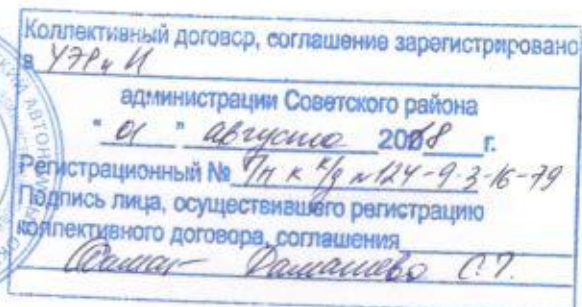 Коллективный договор, соглашение зарегистрировано
в УЭРиИ
администрации Советского района
"01" августа 2018 г.
Регистрационный № Пн к к/д №124-9-3-16-79
Подпись лица, осуществившего регистрацию
коллективного договора, соглашения
С.Т.